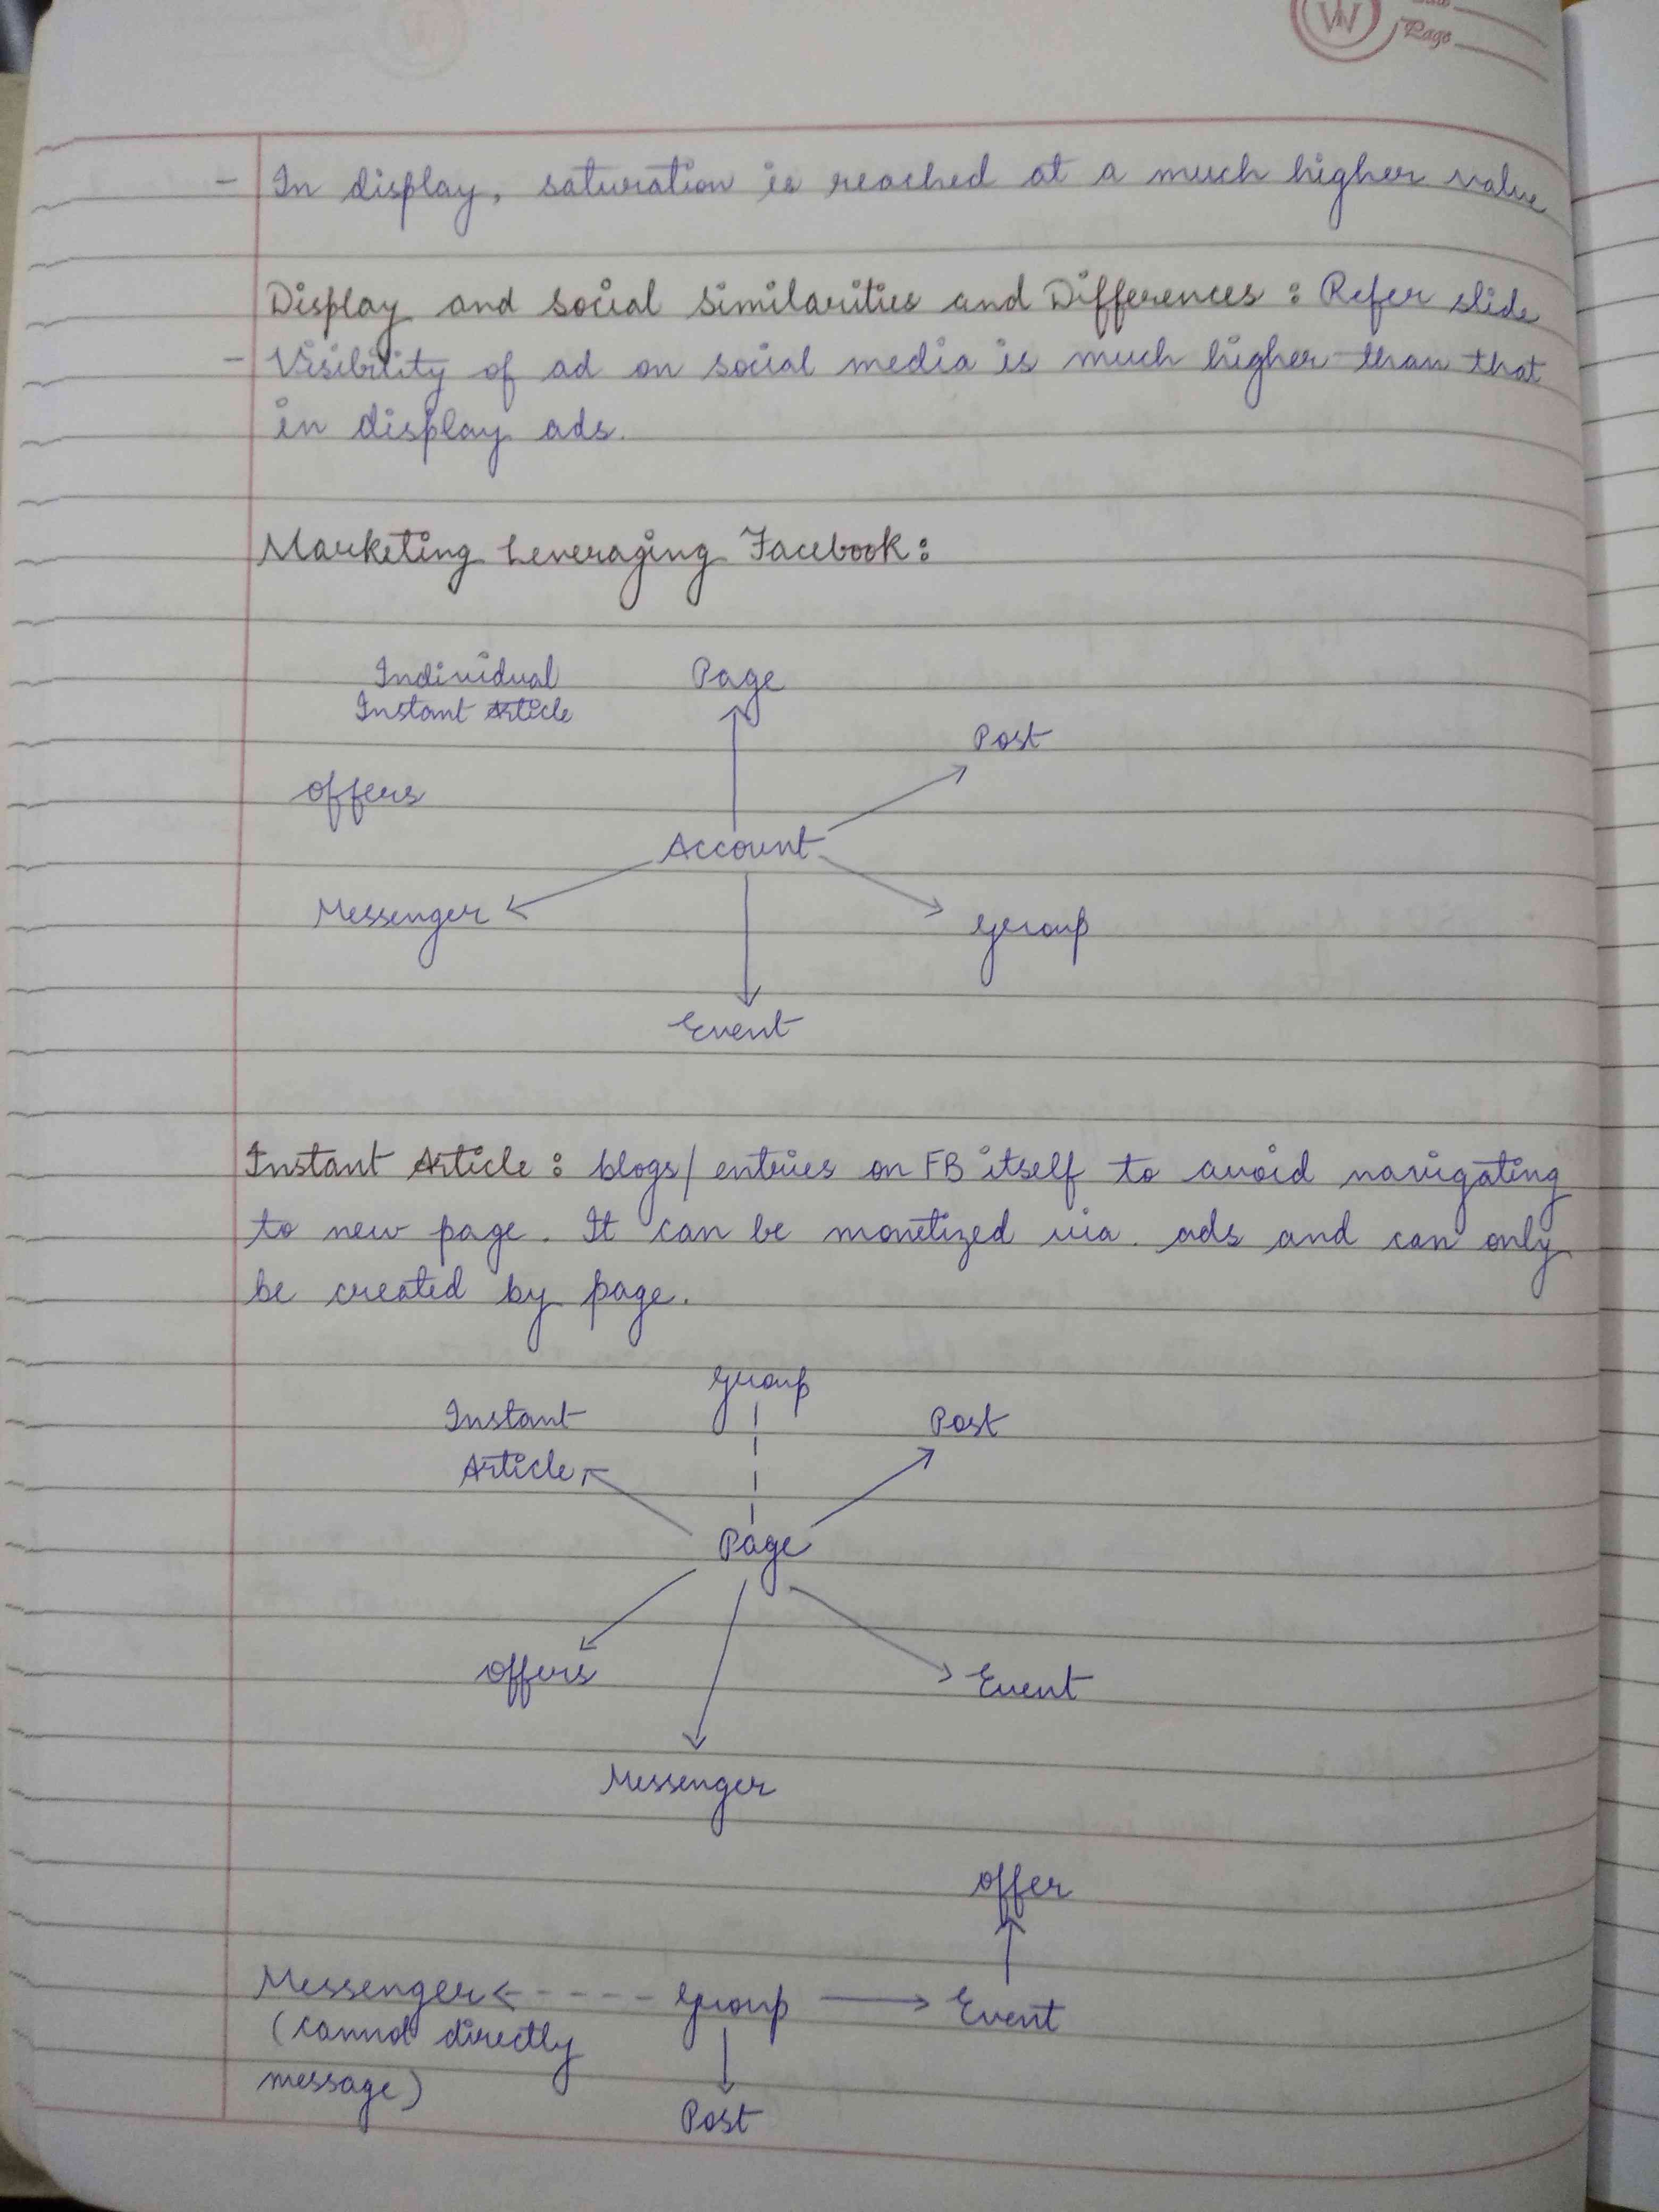 Page
- In display, saturation is reached at a much higher value
Display and social similarities and Differences : Refer slide
- Visibility of ad on social media is much higher than that
in display ads.
Marketing Leveraging Facebook :
Individual
Instant Article
Page
Post
offers
Account
Messenger
Group
Event
Instant Article : blogs/ entries on FB itself to avoid navigating
to new page. It can be monetized via. ads and can only
be created by page.
Group
Instant
Article
Post
Page
offers
Event
Messenger
offer
Messenger
Group
Event
(cannot directly
message)
Post